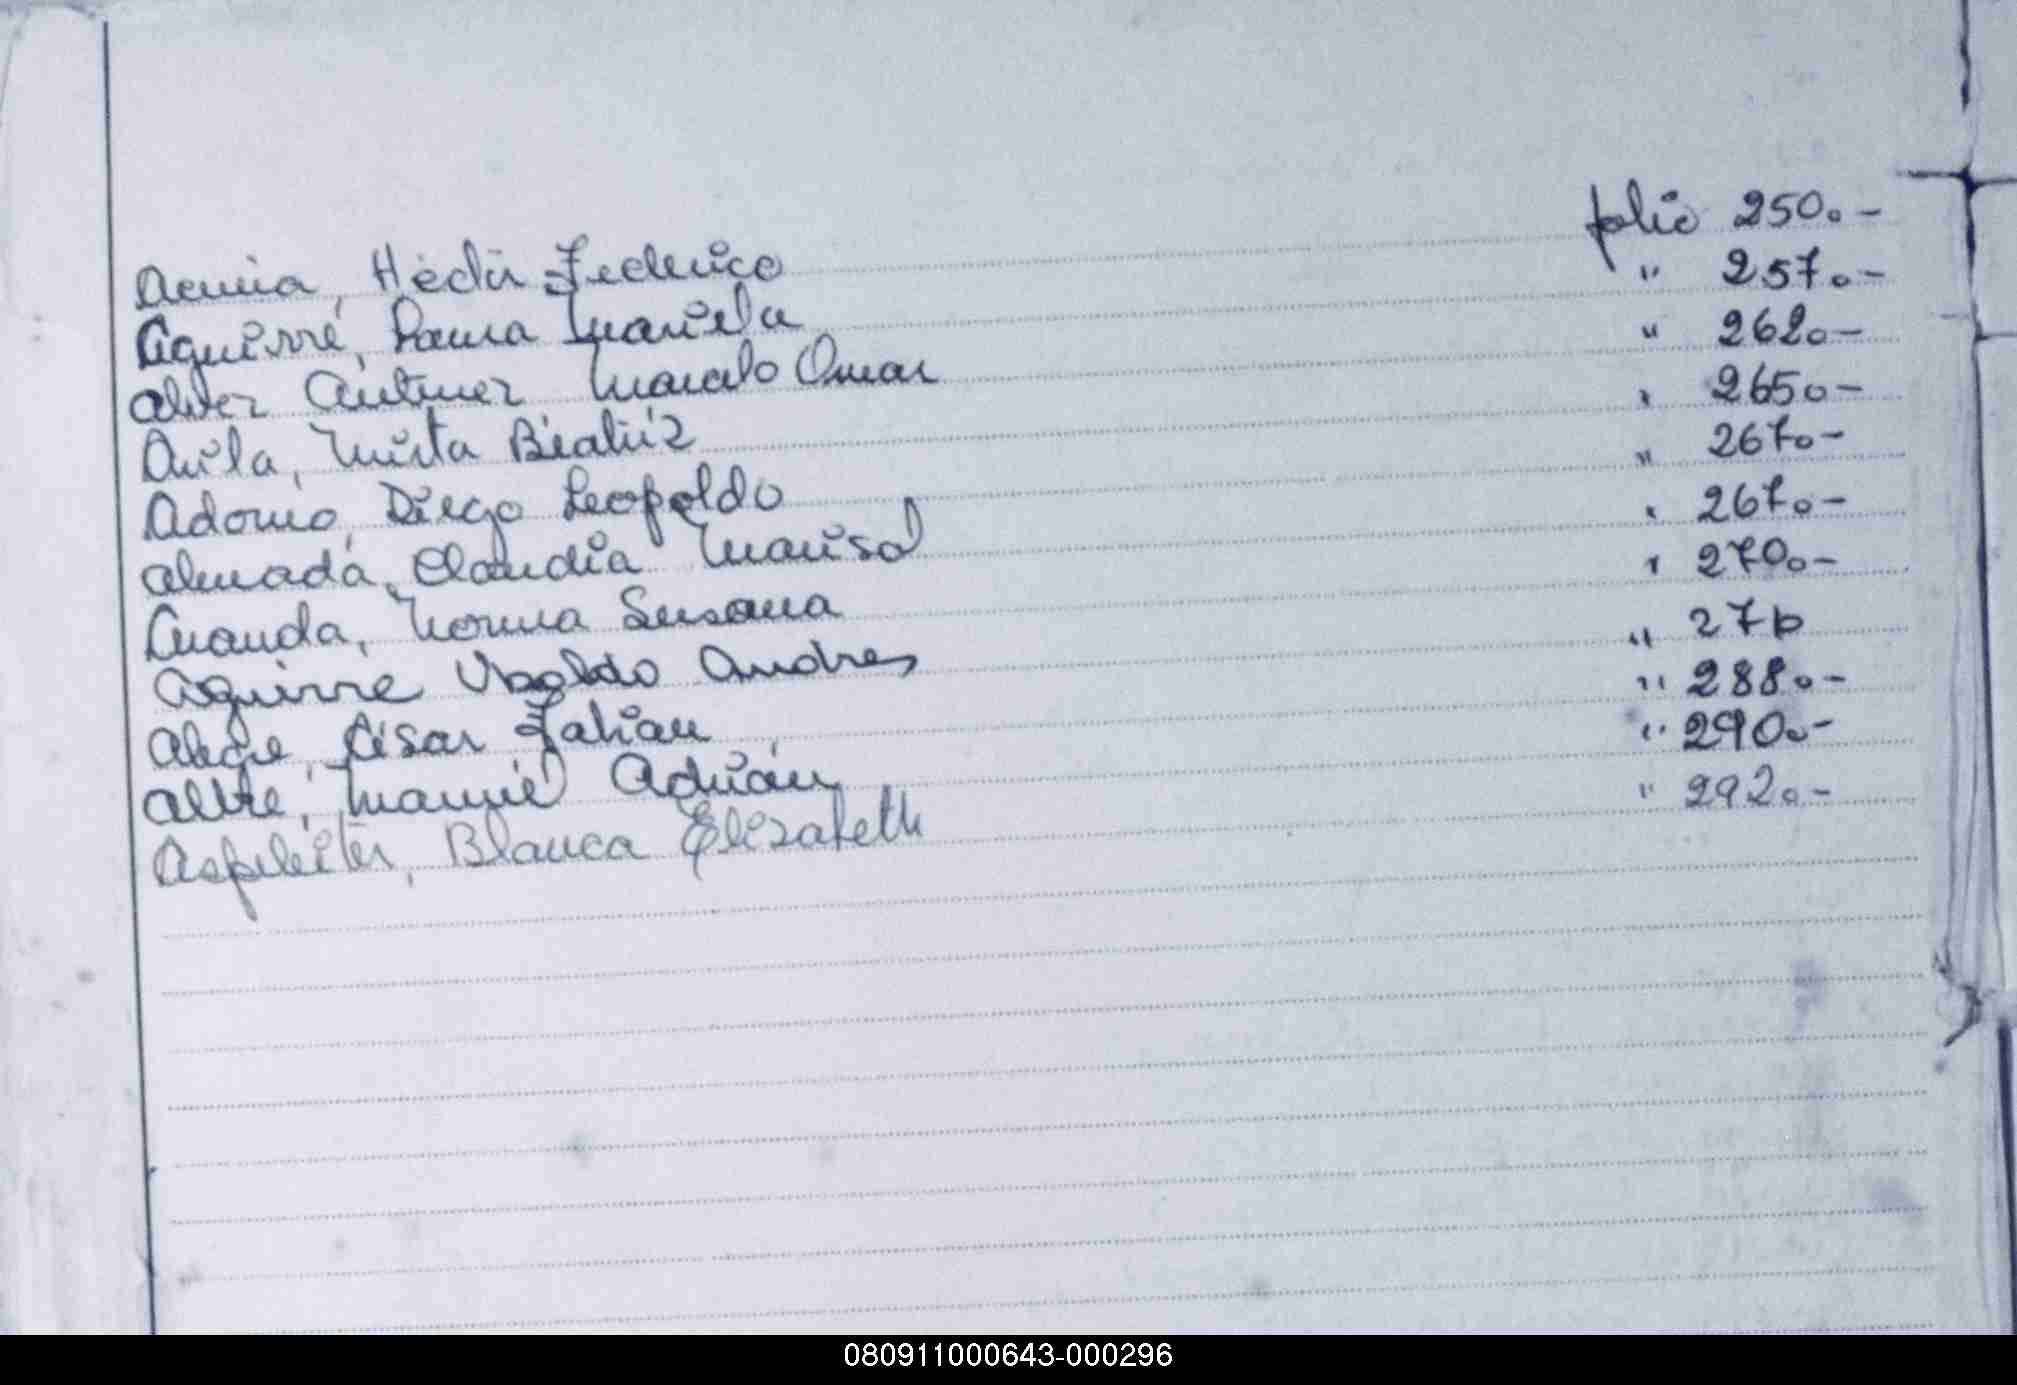 Acuña, Héctor Federico folio 250.-
Aguirre, Laura Mariela " 257.-
Alvez Antunez Marcelo Omar " 262.-
Avila, Mirta Beatríz " 265.-
Adorno, Diego Leopoldo " 267.-
Almada, Claudia Marisol " 267.-
Aranda, Norma Susana " 270.-
Aguirre Ubaldo Andres " 27
Alegre, César Fabian " 288.-
Manuel Adrián " 290.-
Blanca Elizabeth " 292.-
080911000643-000296